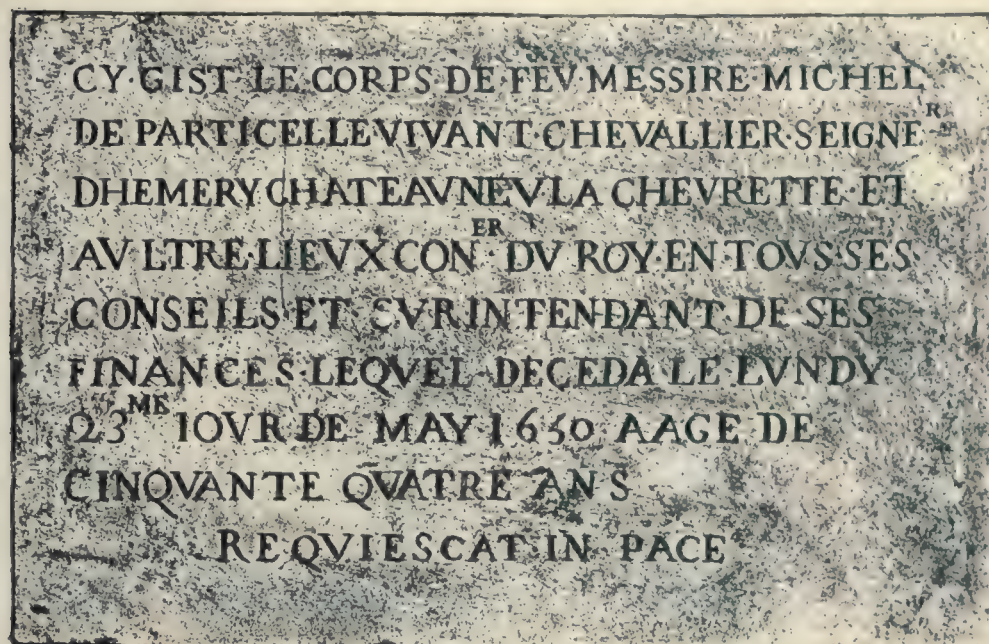 CY·GIST·LE·CORPS·DE·FEV·MESSIRE·MICHEL
DE PARTICELLE·VIVANT·CHEVALLIER·SEIGNEᴿ
DHEMERY CHATEAVNEV LA CHEVRETTE·ET
AVLTRE·LIEVX CONᴱᴿ DV ROY·EN·TOVS·SES·
CONSEILS·ET·SVRINTENDANT·DE·SES
FINANCES·LEQVEL·DECEDA·LE·LVNDY
23ᴹᴱ IOVR·DE MAY·1650 AAGE DE
CINQVANTE QVATRE ANS
REQVIESCAT·IN·PACE